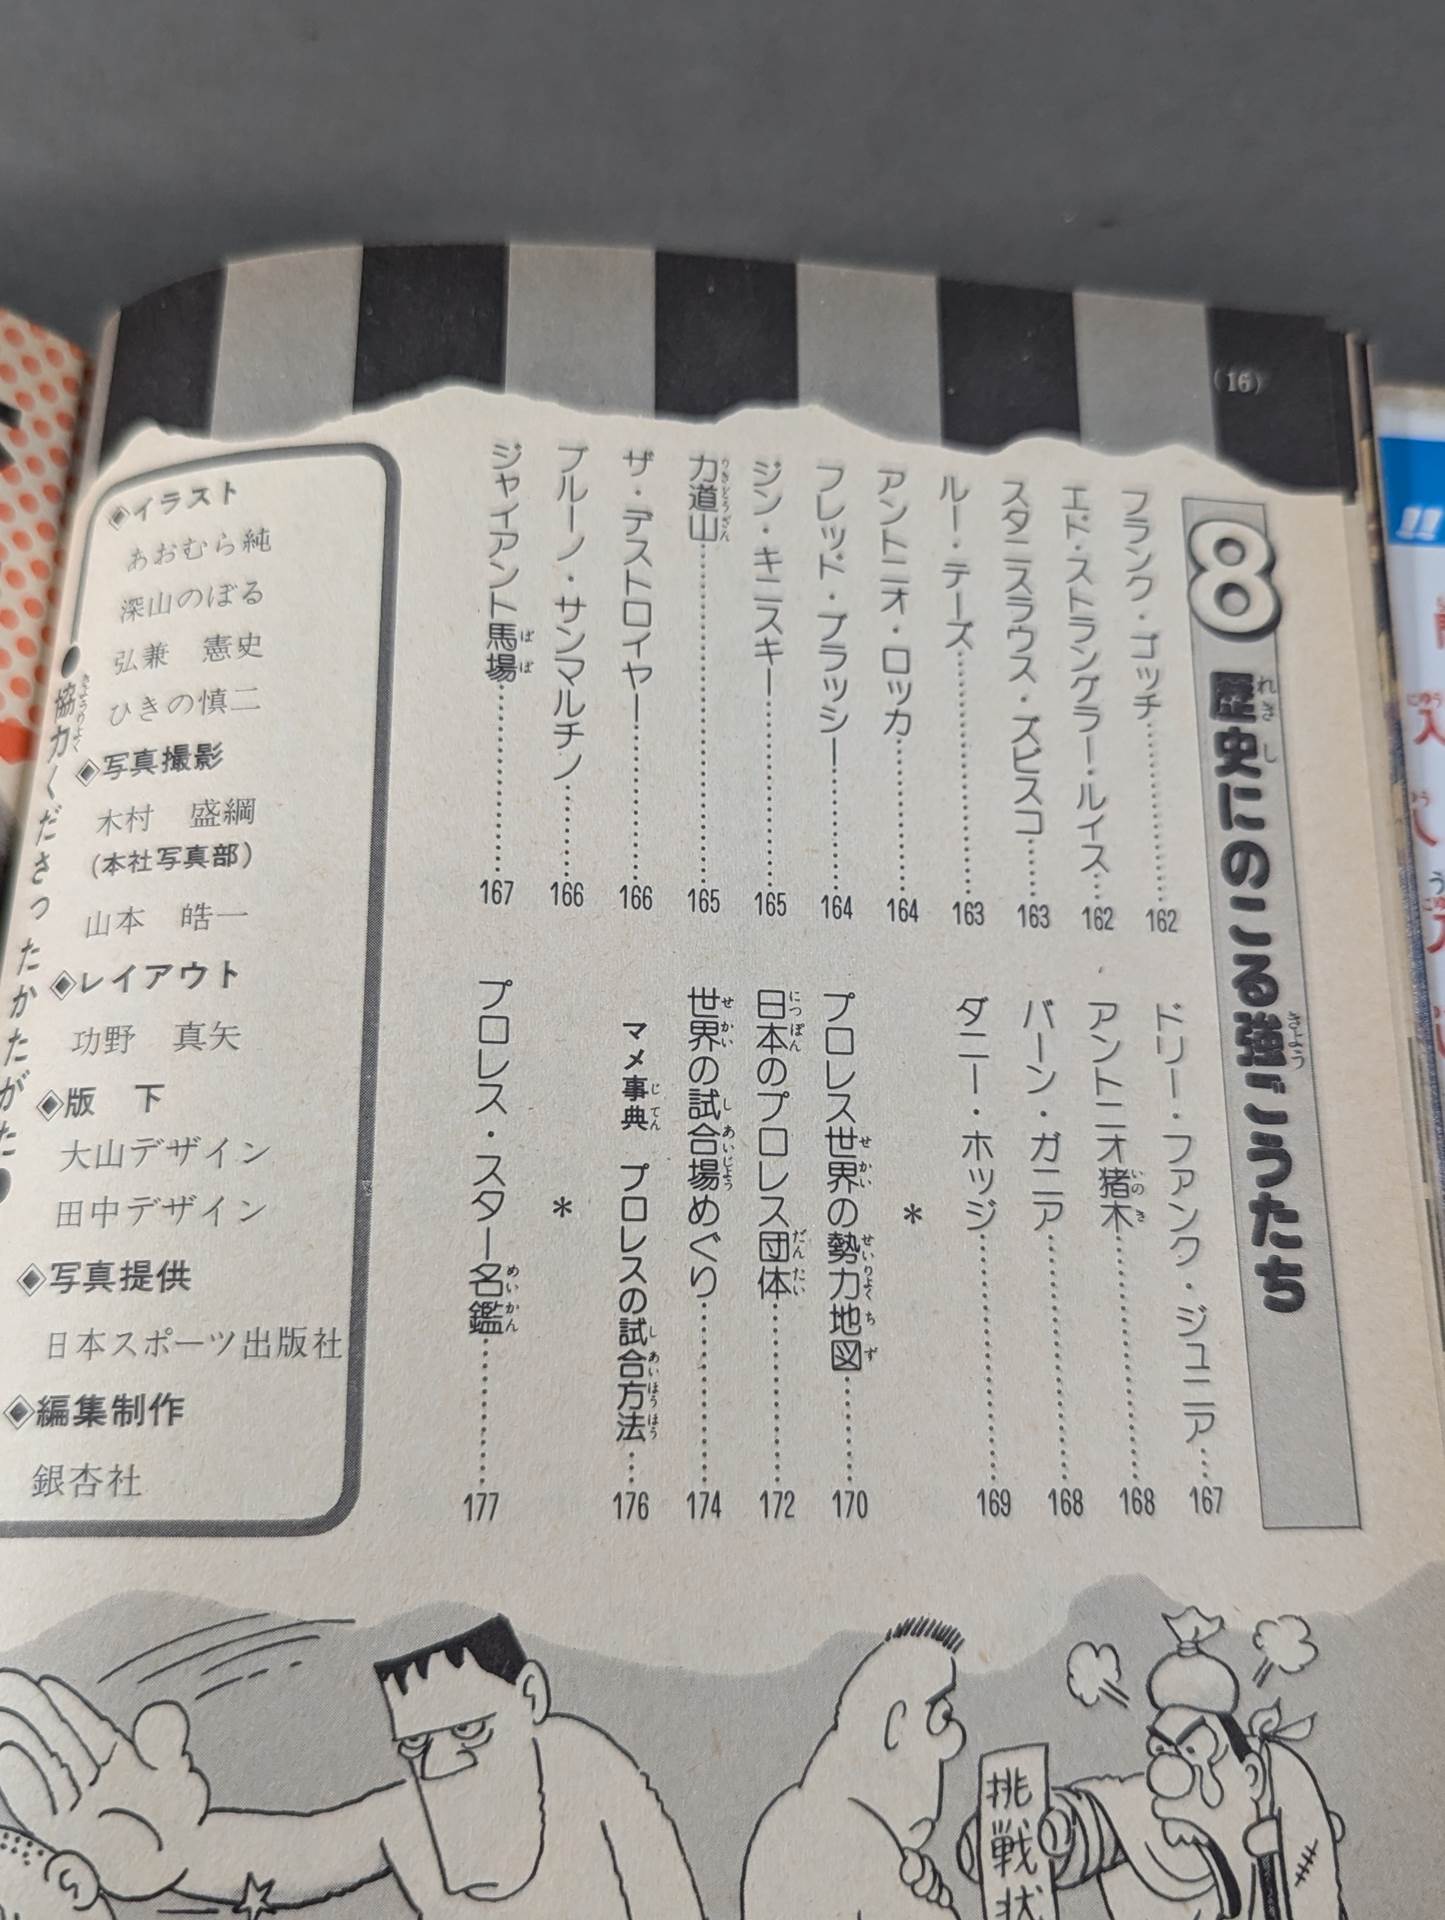 (16)
8 歴史にのこる強ごうたち
フランク・ゴッチ………162
エド・ストラングラー・ルイス…162
スタニスラウス・ズビスコ……163
ルー・テーズ………163
アントニオ・ロッカ………164
フレッド・ブラッシー………164
ジン・キニスキー………165
力道山………165
ザ・デストロイヤー………166
ブルーノ・サンマルチノ………166
ジャイアント馬場………167
ドリー・ファンク・ジュニア…167
アントニオ猪木………168
バーン・ガニア………168
ダニー・ホッジ………169
*
プロレス世界の勢力地図………170
日本のプロレス団体………172
世界の試合場めぐり………174
マメ事典 プロレスの試合方法…176
*
プロレス・スター名鑑………177
◈イラスト
あおむら純
深山のぼる
弘兼 憲史
ひきの慎二
◈写真撮影
木村 盛綱
(本社写真部)
山本 皓一
◈レイアウト
功野 真矢
◈版 下
大山デザイン
田中デザイン
◈写真提供
日本スポーツ出版社
◈編集制作
銀杏社
●協力くださったかたがた●
挑戦状
!!